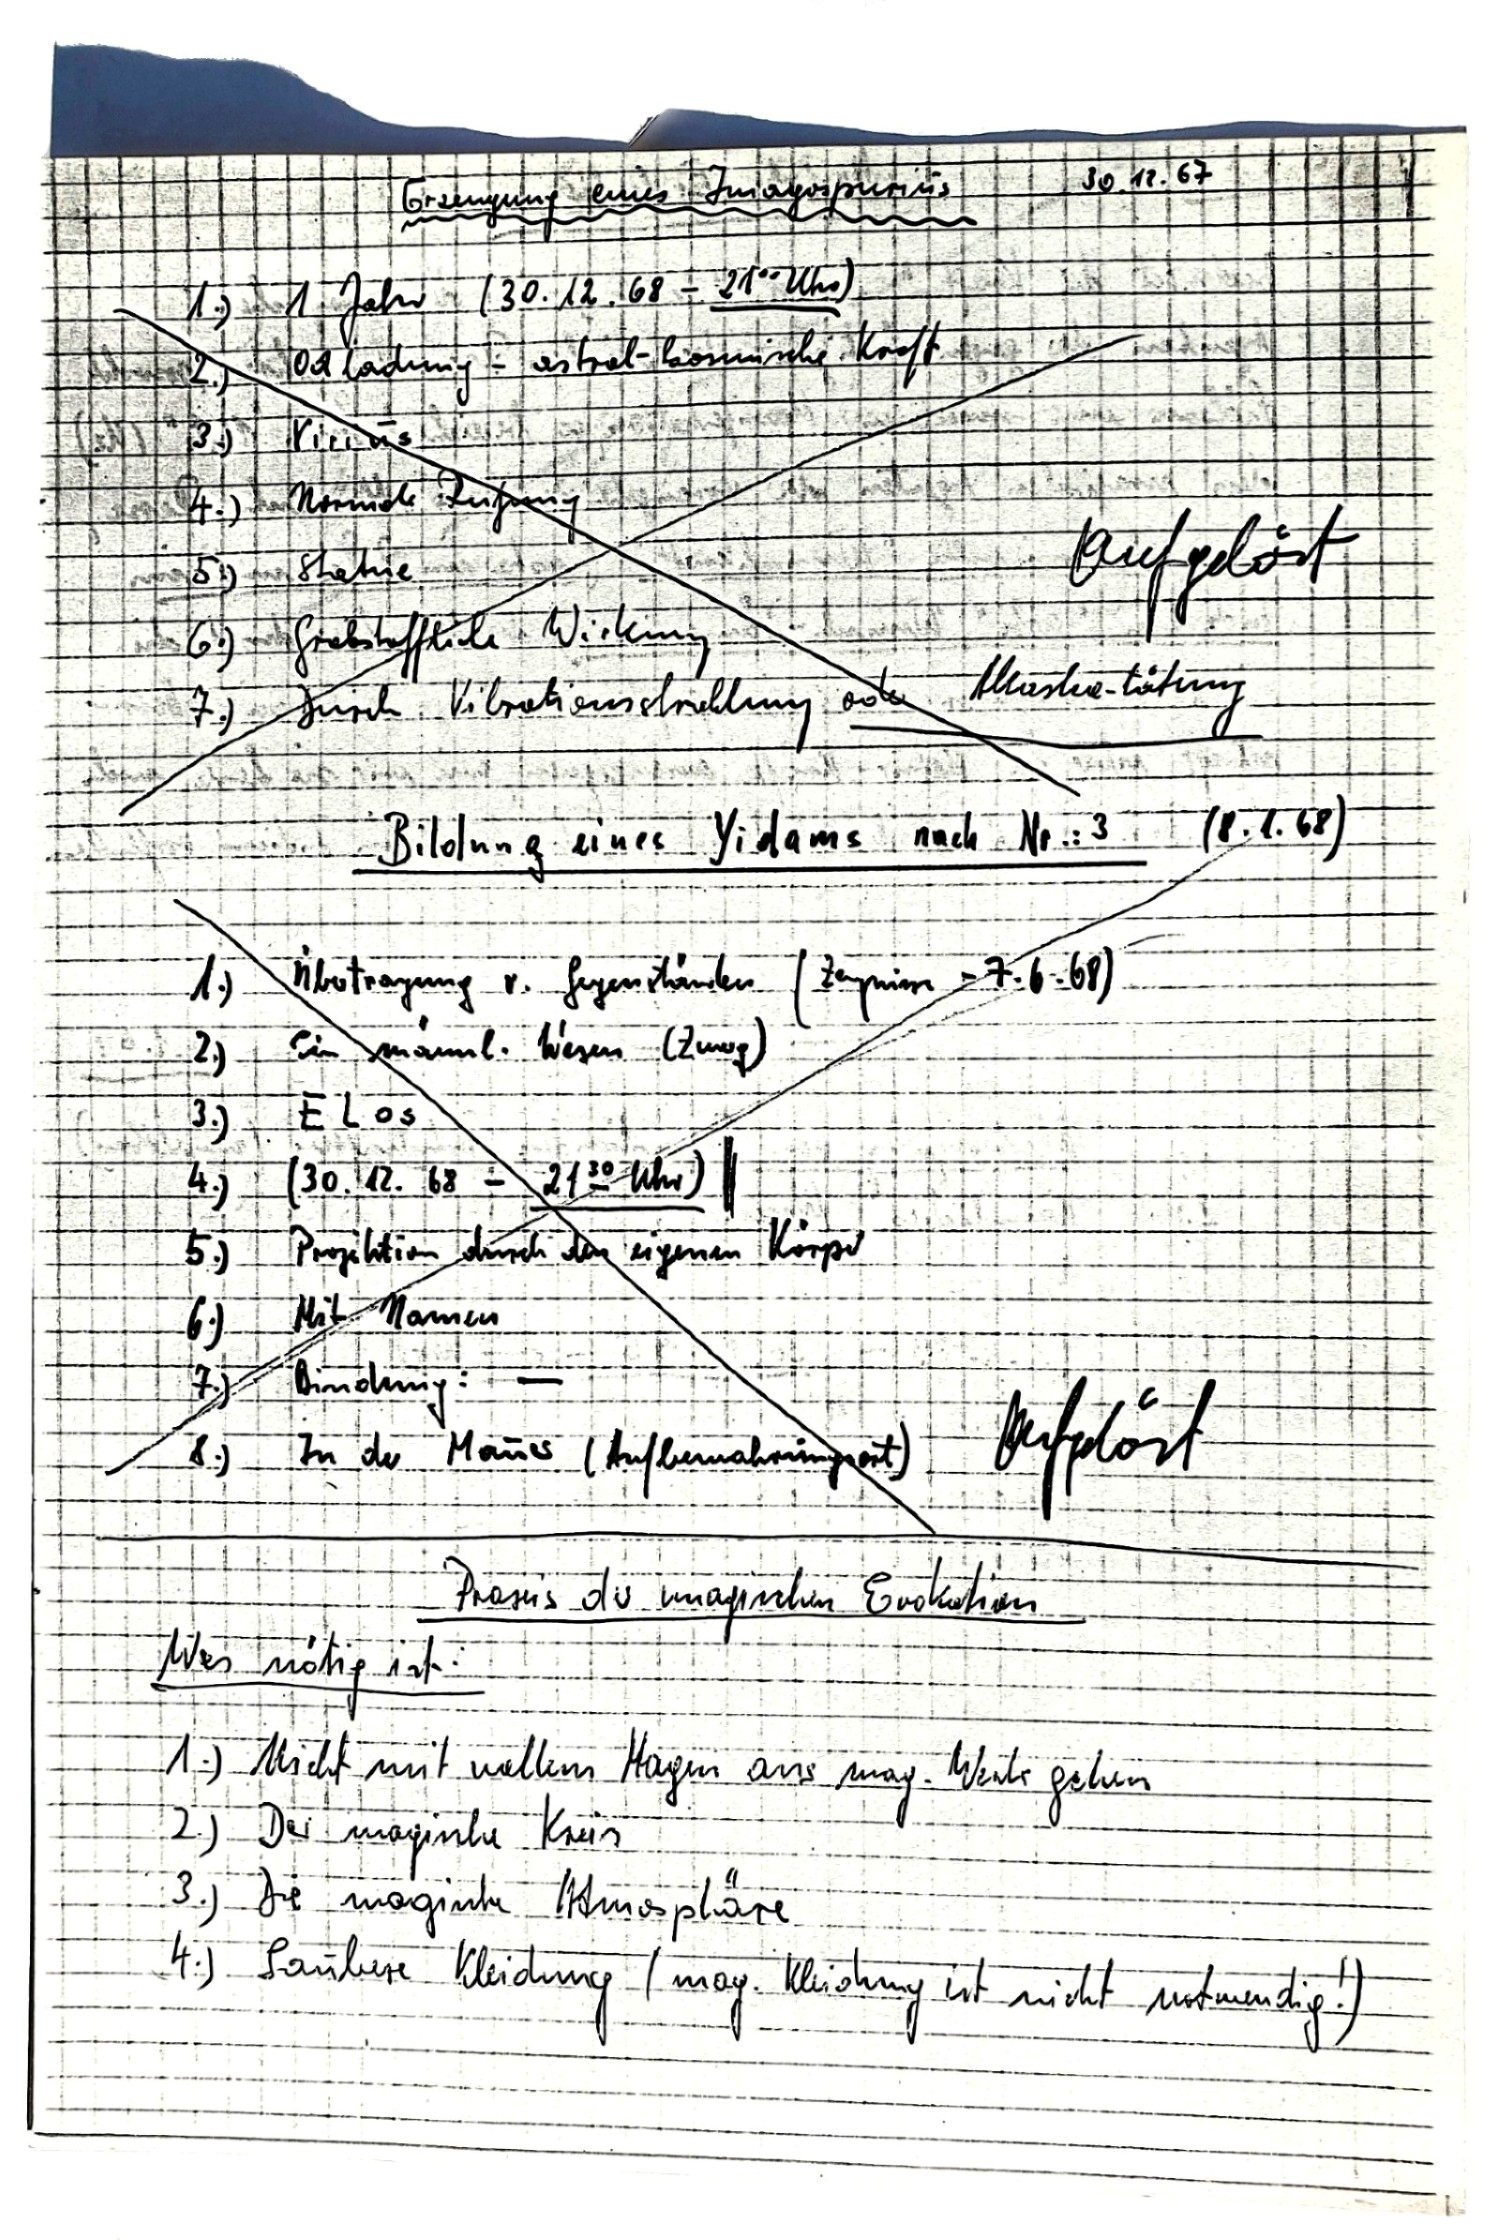 Erzeugung eines Imagospurius 30.12.67
1.) 1 Jahr (30.12.68 - 21⁰⁰ Uhr)
2.) Odladung - astral-kosmische Kraft
3.)
4.) Normale
5.) Statue
6.) Grobstoffliche Wirkung
7.) Durch Vibrationsstrahlung oder
Aufgelöst
Bildung eines Yidams nach Nr.: 3 (8.1.68)
1.) Übertragung v. Gegenständen (Zeugnisse - 7.6.68)
2.) Ein männl. Wesen (Zwerg)
3.) ELos
4.) (30.12.68 - 21³⁰ Uhr)
5.) Projektion durch den eigenen Körper
6.) Mit Namen
7.) Bindung: —
8.) In der Mauer (Aufbewahrungsort)
Aufgelöst
Praxis der magischen Evokation
Was nötig ist:
1.) Nicht mit vollem Magen ans mag. Werk gehen
2.) Der magische Kreis
3.) Die magische Atmosphäre
4.) Saubere Kleidung (mag. Kleidung ist nicht notwendig!)